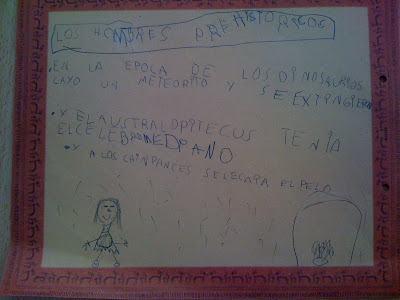 LOS HOMBRES PREHISTORICOS
.EN LA EPOLA DE LOS DINOSAURIOS
CAYO UN METEORITO Y SE EXTINGIERON
.Y EL AUSTRALOPITECUS TENIA
EL CELEBRO MEDIANO
.Y A LOS CHINPANCES SE LES CAIA EL PELO